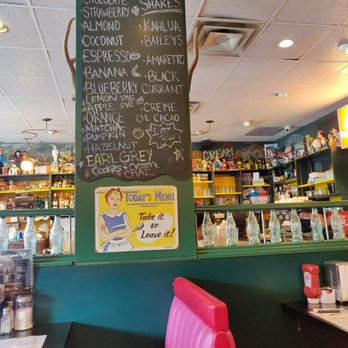 CHOCOLATE
STRAWBERRY
ALMOND
COCONUT
ESPRESSO
BANANA
LEMON PIE
APPLE PIE
ORANGE
MATCHA
PUMPKIN
HAZELNUT
EARL GREY
& Cookies & cream
SHAKES
KAHLUA
BAILEYS
AMARETTO
BLACK
CURRANT
CREME
DE CACAO
TODAY'S MENU
Take it
or
Leave it!